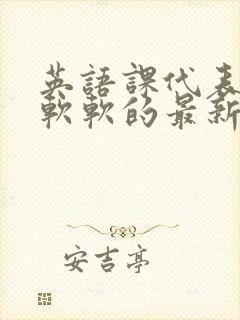 英語課代表
軟軟的最新
安吉亭